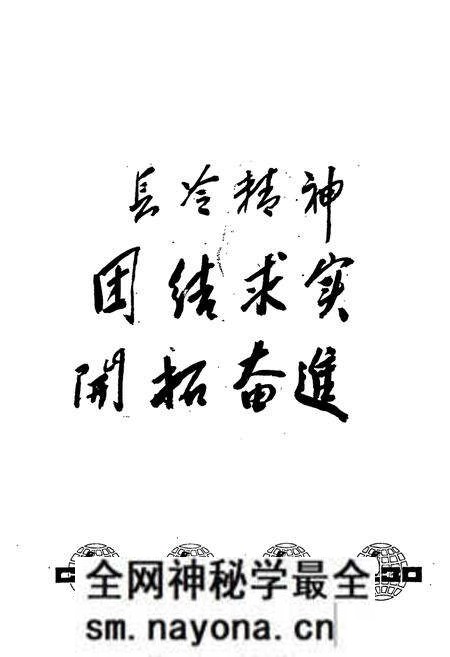 長冷精神
团结求实
開拓奋進
全网神秘学最全
sm.nayona.cn